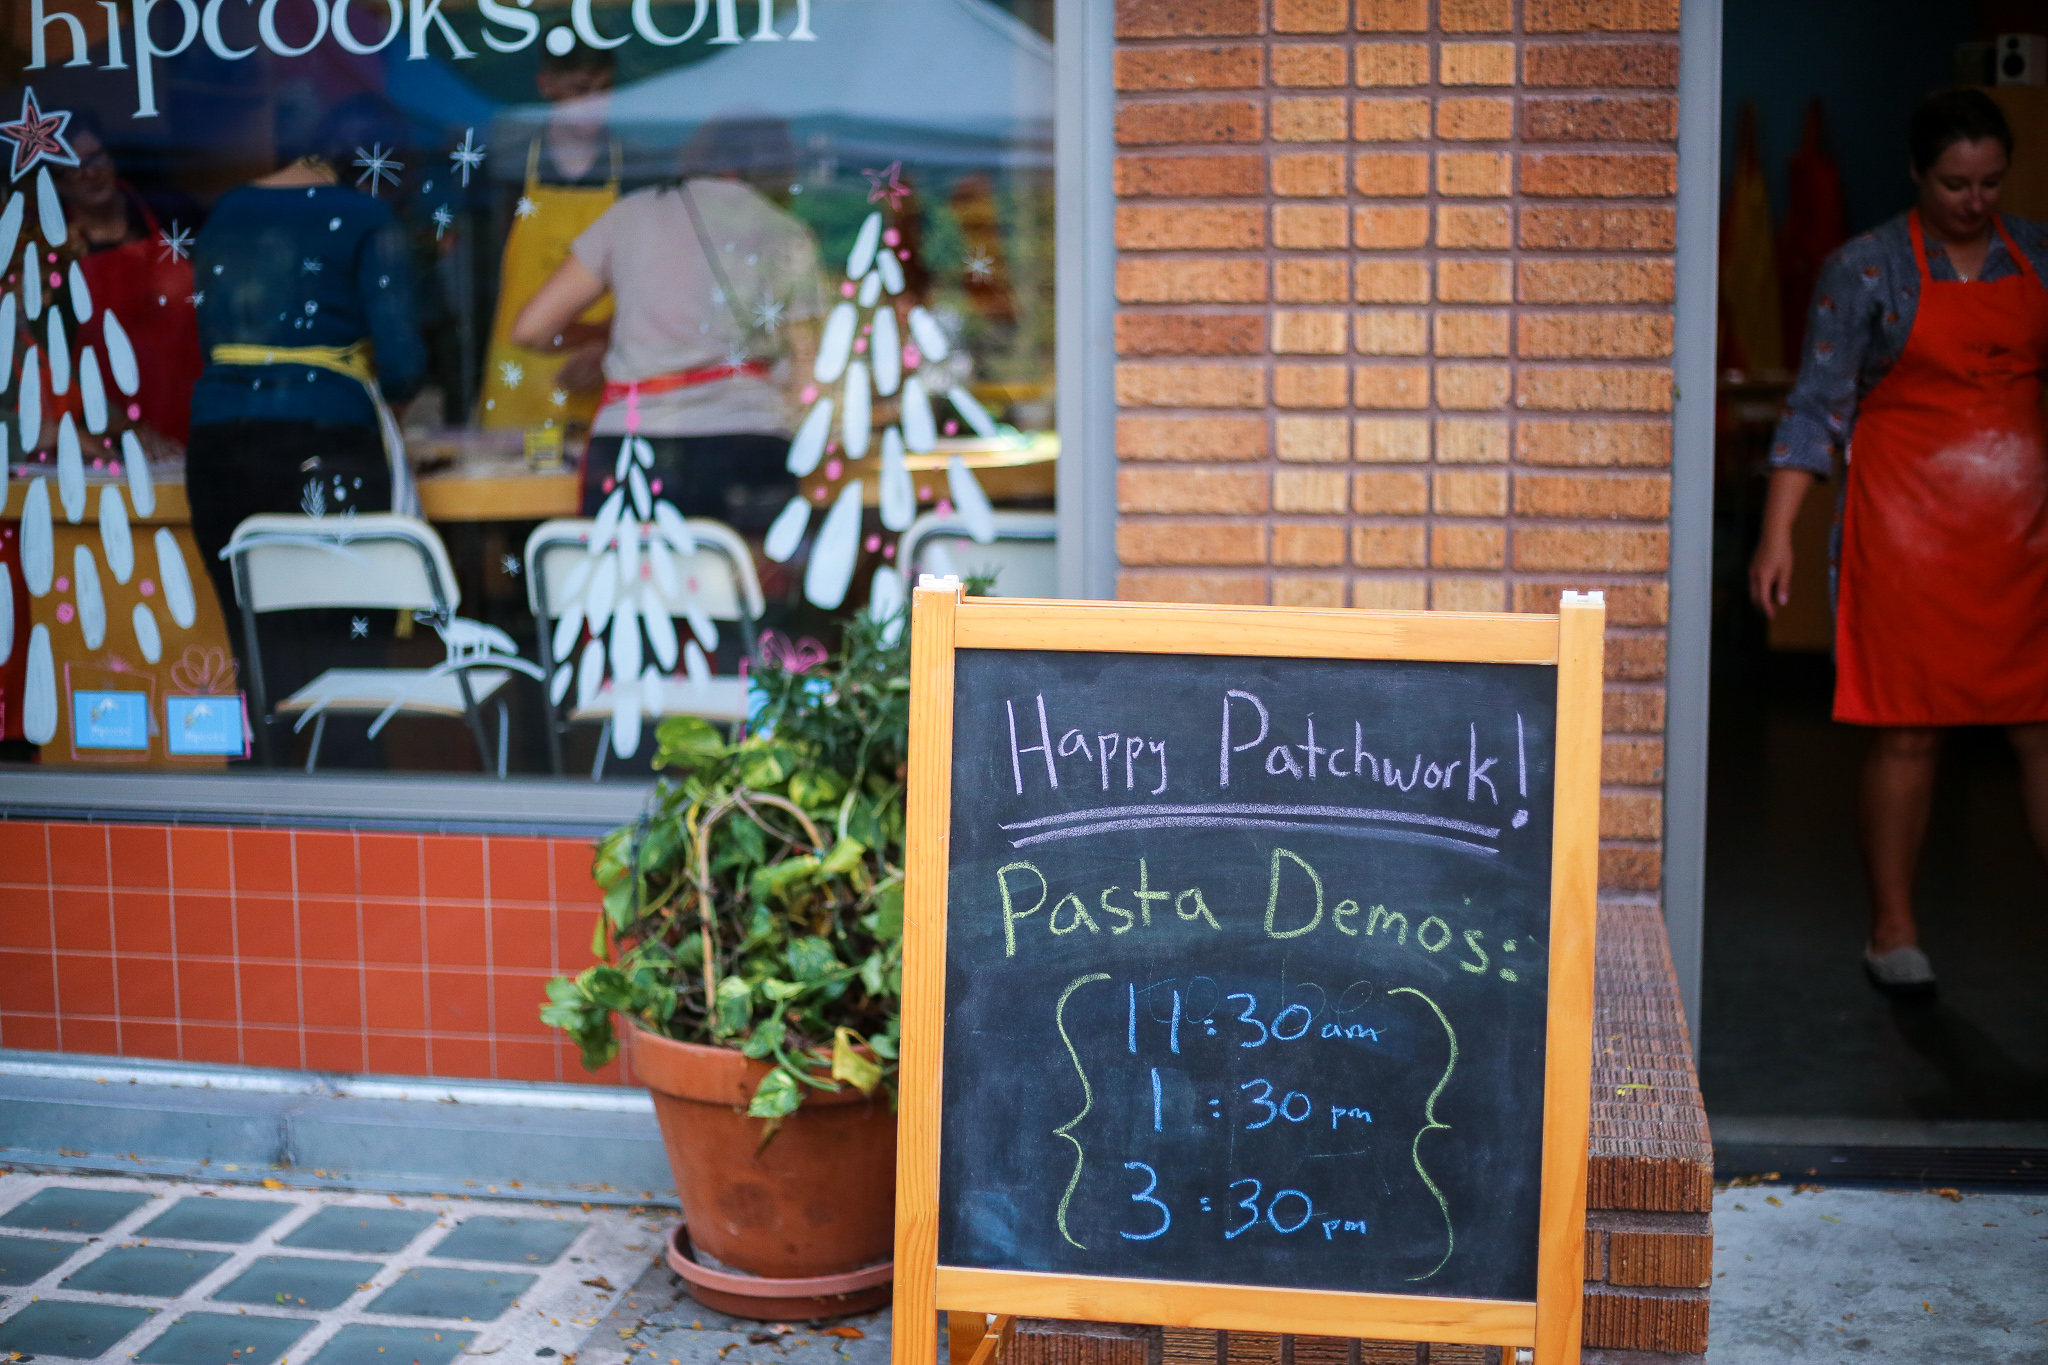 hipcooks.com
Happy Patchwork!
Pasta Demo's:
11:30 am
1:30 pm
3:30 pm